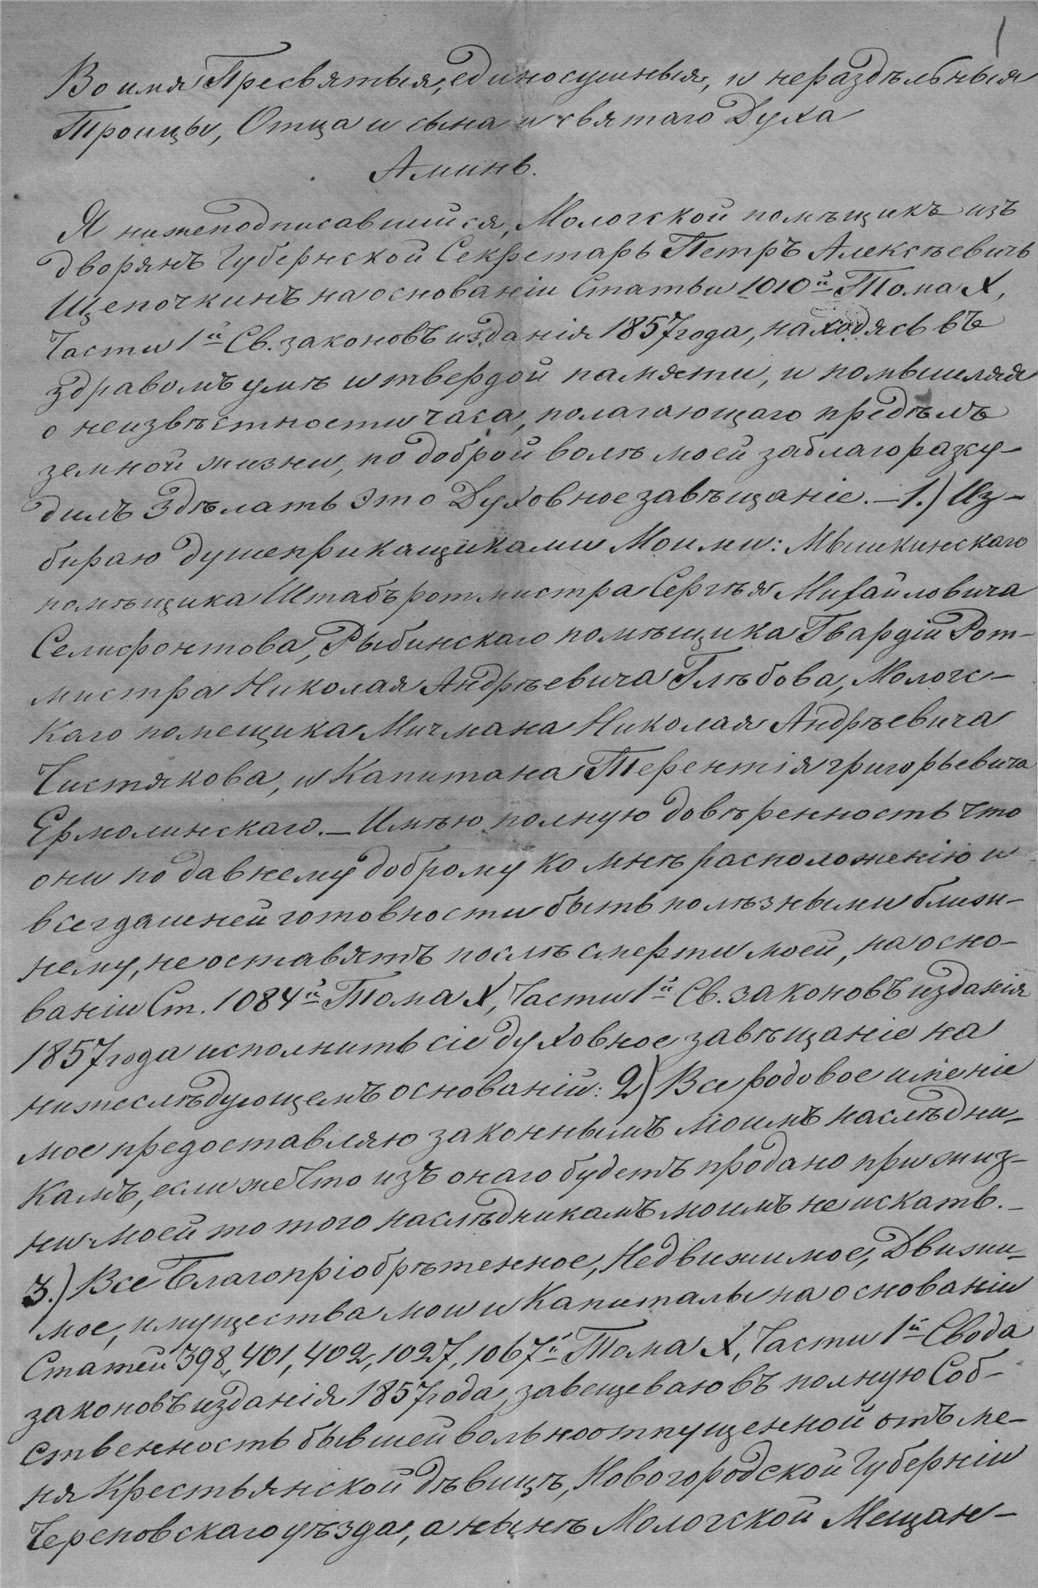 1
Во имя Пресвятыя, единосущныя, и нераздѣльныя
Троицы, Отца и сына и святаго Духа
Аминь.
Я нижеподписавшийся, Мологской помѣщикъ изъ
дворянъ Губернской Секретарь Петръ Алексѣевичь
Щепочкинъ на основаніи Статьи 1010й Тома X,
Части 1й Св. законовъ изданія 1857 года, находясь въ
здравомъ умѣ и твердой памяти, и помышляя
о неизвѣстности часа, полагающаго предѣлъ
земной жизни, по доброй волѣ моей заблагоразсу-
дилъ Здѣлать это Духовное завѣщаніе. — 1.) Из-
бираю душеприкащиками Моими: Мышкинскаго
помѣщика Штабъ ротмистра Сергѣя Михайловича
Селифонтова, Рыбинскаго помѣщика Гвардіи Рот-
мистра Николая Андрѣевича Глѣбова, Молог-
каго помещика Мичмана Николая Андрѣевича
Чистякова, и Капитана Терентія григорьевича
Ермолинскаго. — Имѣю полную довѣренность что
они по давнему доброму ко мнѣ расположенію и
всегдашней готовности быть полѣзными ближ-
нему, не оставятъ послѣ смерти моей, на осно-
ваніи Ст. 1084й Тома X, Части 1й Св. законовъ изданія
1857 года исполнить сіе духовное завѣщаніе на
нижеслѣдующемъ основаніи: 2) Все родовое имѣніе
мое предоставляю законнымъ моимъ наслѣдни-
камъ, если же что изъ онаго будетъ продано при жиз-
ни моей то того наслѣдникамъ моимъ не искать. —
3.) Все Благопріобрѣтенное, Недвижимое, Движи-
мое, имущества мои и Капиталы на основаніи
Статей 398, 401, 402, 1027, 1067й Тома X, Части 1й Свода
законовъ изданія 1857 года, завещеваю въ полную Соб-
ственность бывшей вольноотпущенной отъ ме-
ня Крестьянской дѣвицѣ, Новогородской Губерніи
Череповскаго уѣзда, а нынѣ Мологской Мещан-